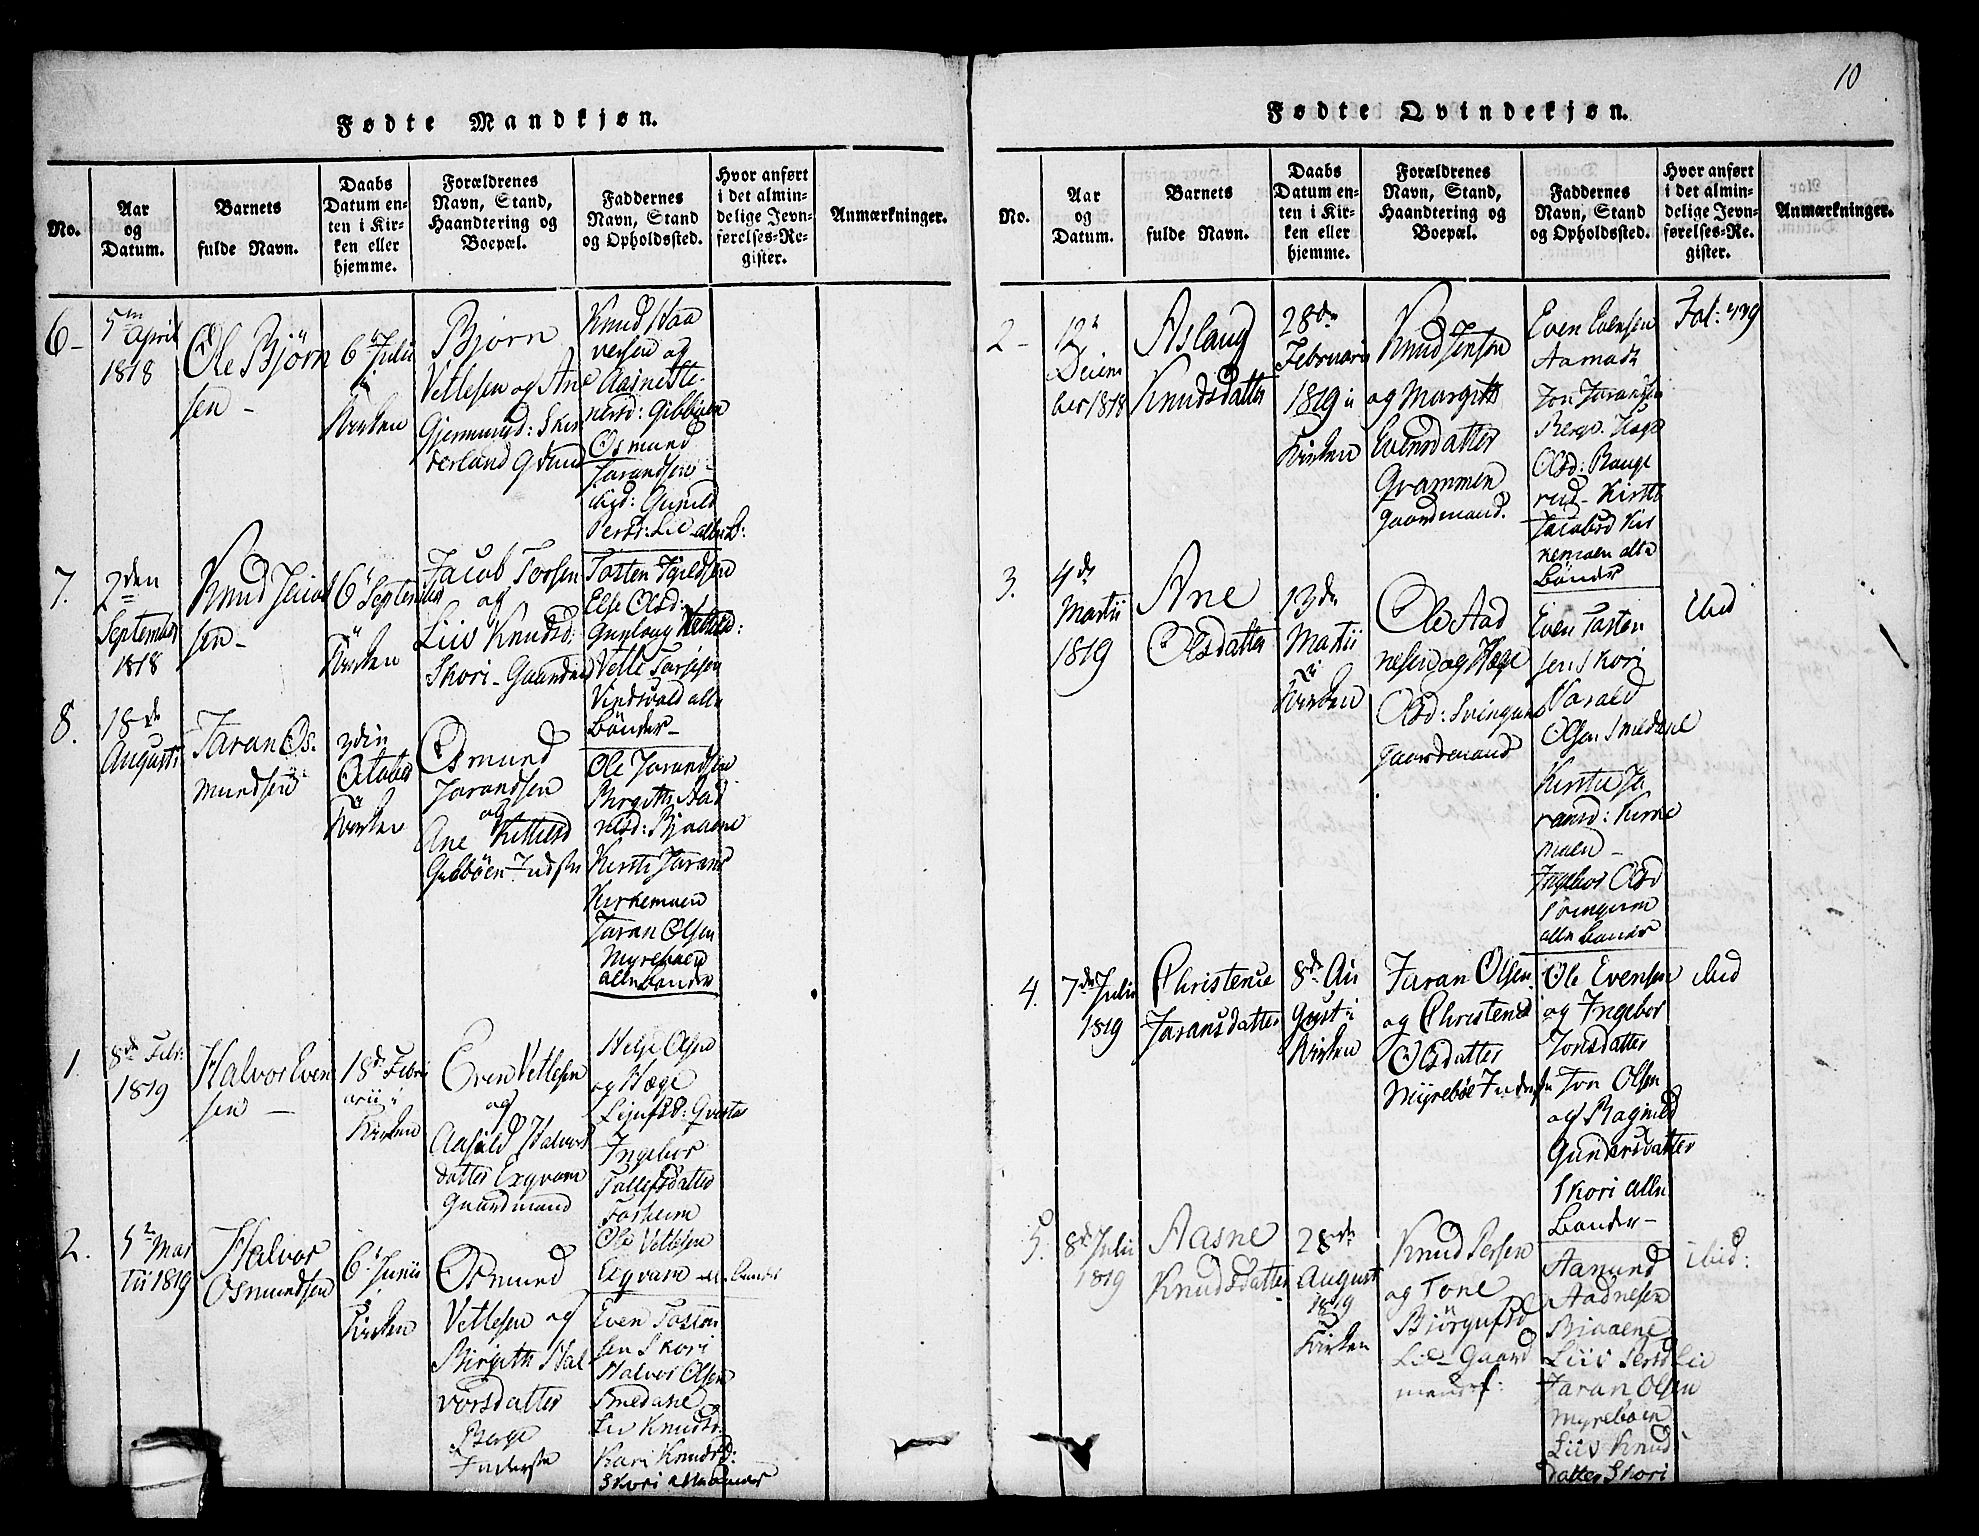 Fødte Mandkjøn.
No.
Aar
og
Datum.
Barnets
fulde Navn.
Daabs
Datum en-
ten i Kir-
ken eller
hjemme.
Forældrenes
Navn, Stand,
Haandtering og
Boepæl.
Faddernes
Navn, Stand
og Opholdssted.
Hvor anført
i det almin-
delige Jevn-
førelses-Re-
gister.
Anmærkninger.
6-
5 April
1818
Ole Bjørn
sen -
6 Julii
i
Kirken
Bjørn
Vetlesen og Ane
Gjermund:
derland
Knud Haa
versen og
Osmund
Jarandsen
Gunild
Persd: Lie alle B:
7.
2den
September
1818
Knud Jacob
sen -
6 September
i
Kirken
Jacob Torsen
og
Liiv Knudsd:
Skori - Gaardm
Tosten
Else Olsd:
Gunloug
Vetle
Vindsvold alle
Bönder -
8.
18de
Augusti
Jaran Os-
mundsen
3die
October
i
Kirken
Osmund
Jarandsen
og
Ane Kittilsd
Gibböen - Inderste
Ole Jarandsen
Birgithe Aad
nesd: Bjaaene
Kirsti Jarans
Kirkemoen
Jaran Olsen
Myreboen
alle Bønder
1.
8de Febr:
1819
Halvor Even
sen -
18d Febru
arii i
Kirken
Even Vetlesen
og
Aasild Halvors
datter Exqvam
Gaardmand
Helje Olsen
og Hæge
Ingebor
Tollefsdatter
Ole Vetlesen
Exqvam alle Bønder
2.
5 Mar
tii 1819
Halvor
Osmundsen
6 Junii
i
Kirken
Osmund
Vetlesen og
Birgith Hal
vorsdatter
Berge
Inderste
Even Tosten
sen Skori
Halvor Olsen
Smedane
Liv Knudsd:
Kari Knudsd:
Skori alle Bønder
10
Fødte Qvindekjøn.
No.
Aar
og
Datum.
Barnets
fulde Navn.
Daabs
Datum en-
ten i Kir-
ken eller
hjemme.
Forældrenes
Navn, Stand,
Haandtering og
Boepæl.
Faddernes
Navn, Stand
og Opholdssted.
Hvor anført
i det almin-
delige Jevn-
førelses-Re-
gister.
Anmærkninger.
2-
12
Decem
ber 1818
Aslaug
Knudsdatter
28de
Februarii
1819 i
Kirken
Knud Jensen
og Margith
Evensdatter
Grammen
gaardmand.
Even Evensen
Jon Jaransen
Berge
Olsd: Bauge
rud - Kirsti
Jacobsd Kir
kemoen alle
Bønder
Fol: 439
3.
4de
Martii
1819
Ane
Olsdatter
13de
Martii
i
Kirken
Ole Aad
nesen og Hæge
Olsd: Svingen
gaardmand
Even Tosten
sen Skori
Harald
Olsen Smedane
Kirstie Ja
ransd: Kirke
moen -
Ingebor Olsd
alle Bønder
ibid
4.
7de Julii
1819
Christence
Jaransdatter
8de Au
gust i
Kirken
Jaran Olsen
og Christence
Olsdatter
Myreböe Inderste
Ole Evensen
og Ingebor
Jonsdatter
Jon Olsen
og Ragnild
Gundersdatter
Skori alle
Bønder -
ibid
5.
8de Julii
1819
Aasne
Knudsdatter
28de
August
1819
i
Kirken
Knud Persen
og Tone
Björgufsd
Lie - Gaard
mandsf:
Aamund
Aadnesen
Bjaaene
Liiv Persd Lie
Jaran Olsen
Myreboen
Liiv Knud
datter Skori
ibid: